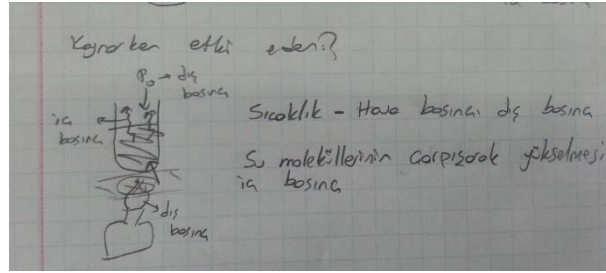 Kaynarken etki eden?
P₀ → dış
basınç
iç
basınç
Sıcaklık - Hava basıncı dış basınç
Su moleküllerinin çarpışarak yükselmesi
iç basınç
dış
basınç